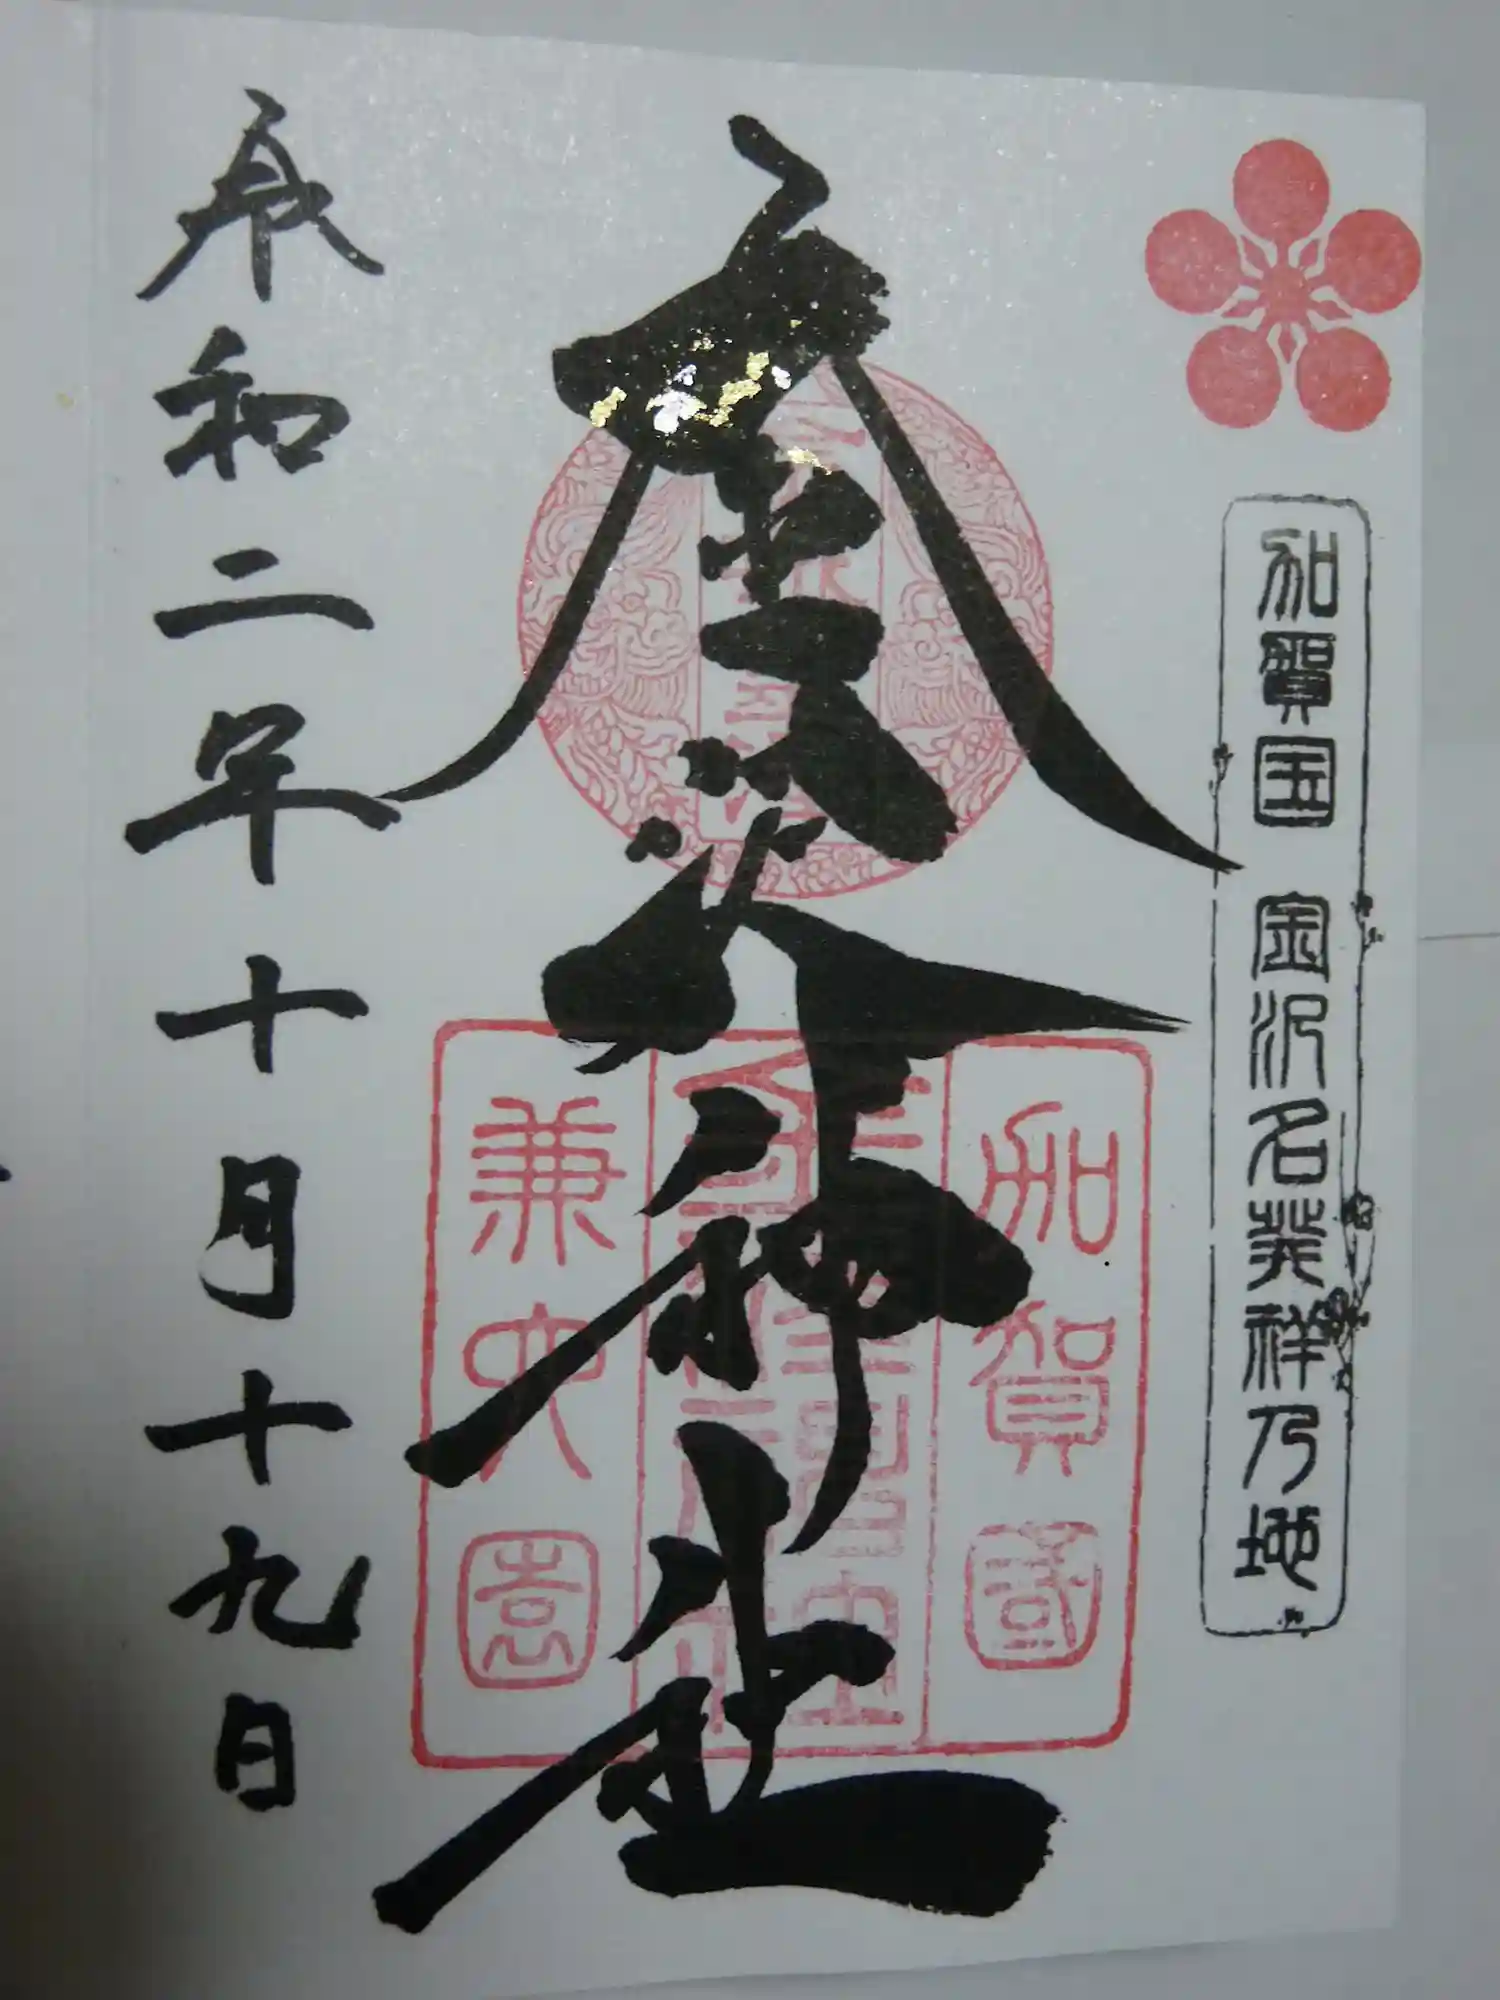 加賀国 金沢名発祥乃地
金澤神社
加賀國
兼六園
令和二年十月十九日